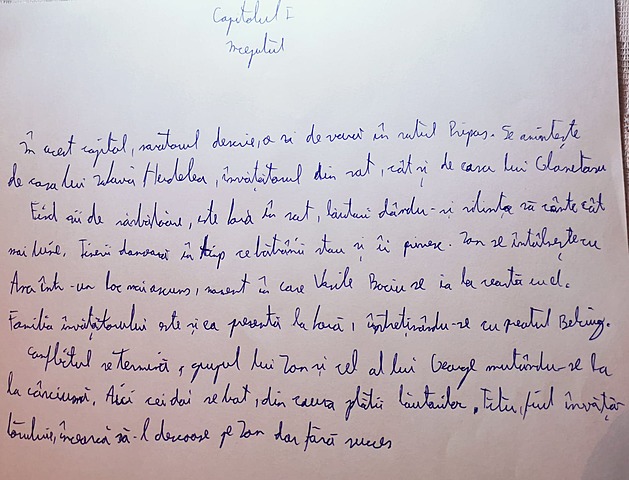 Capitolul I
Începutul
În acest capitol, naratorul descrie, o zi de vară în satul Pripas. Se amintește
de casa lui Zaharia Herdelea, învățătorul din sat, cât și de casa lui Glanetasu
Fiind zii de sărbătoare, este horă în sat, lăutari dându-și silința să cânte cât
mai bine. Tinerii dansează în timp ce bătrânii stau și îi privesc. Ion se întâlnește cu
Ana într-un loc mai ascuns, moment în care Vasile Baciu se ia la ceartă cu el.
Familia învățătorului este și ea prezentă la horă, întreținându-se cu preotul Belciug.
Conflictul se termină, grupul lui Ion și cel al lui George mutându-se la
la cârciumă. Aici cei doi se bat, din cauza plății lăutarilor. Titu, fiul învăță
torului, încearcă să-l descoase pe Ion dar fără succes